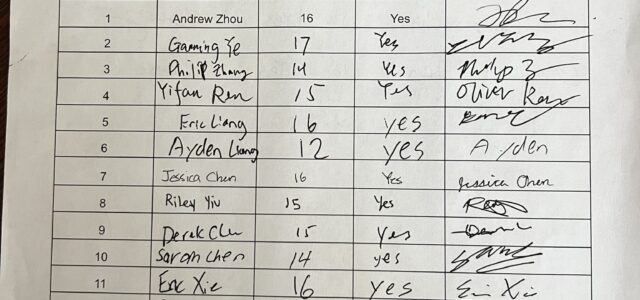 1 Andrew Zhou 16 Yes
2 Gaming Ye 17 Yes
3 Philip Zhang 14 Yes Philip Z
4 Yifan Ren 15 Yes Oliver Ren
5 Eric Liang 16 yes
6 Ayden Liang 12 yes Ayden
7 Jessica Chen 16 Yes Jessica Chen
8 Riley Yiu 15 Yes
9 Derek 15 Yes
10 Sarah Chen 14 yes
11 Eric Xie 16 yes Eric Xie